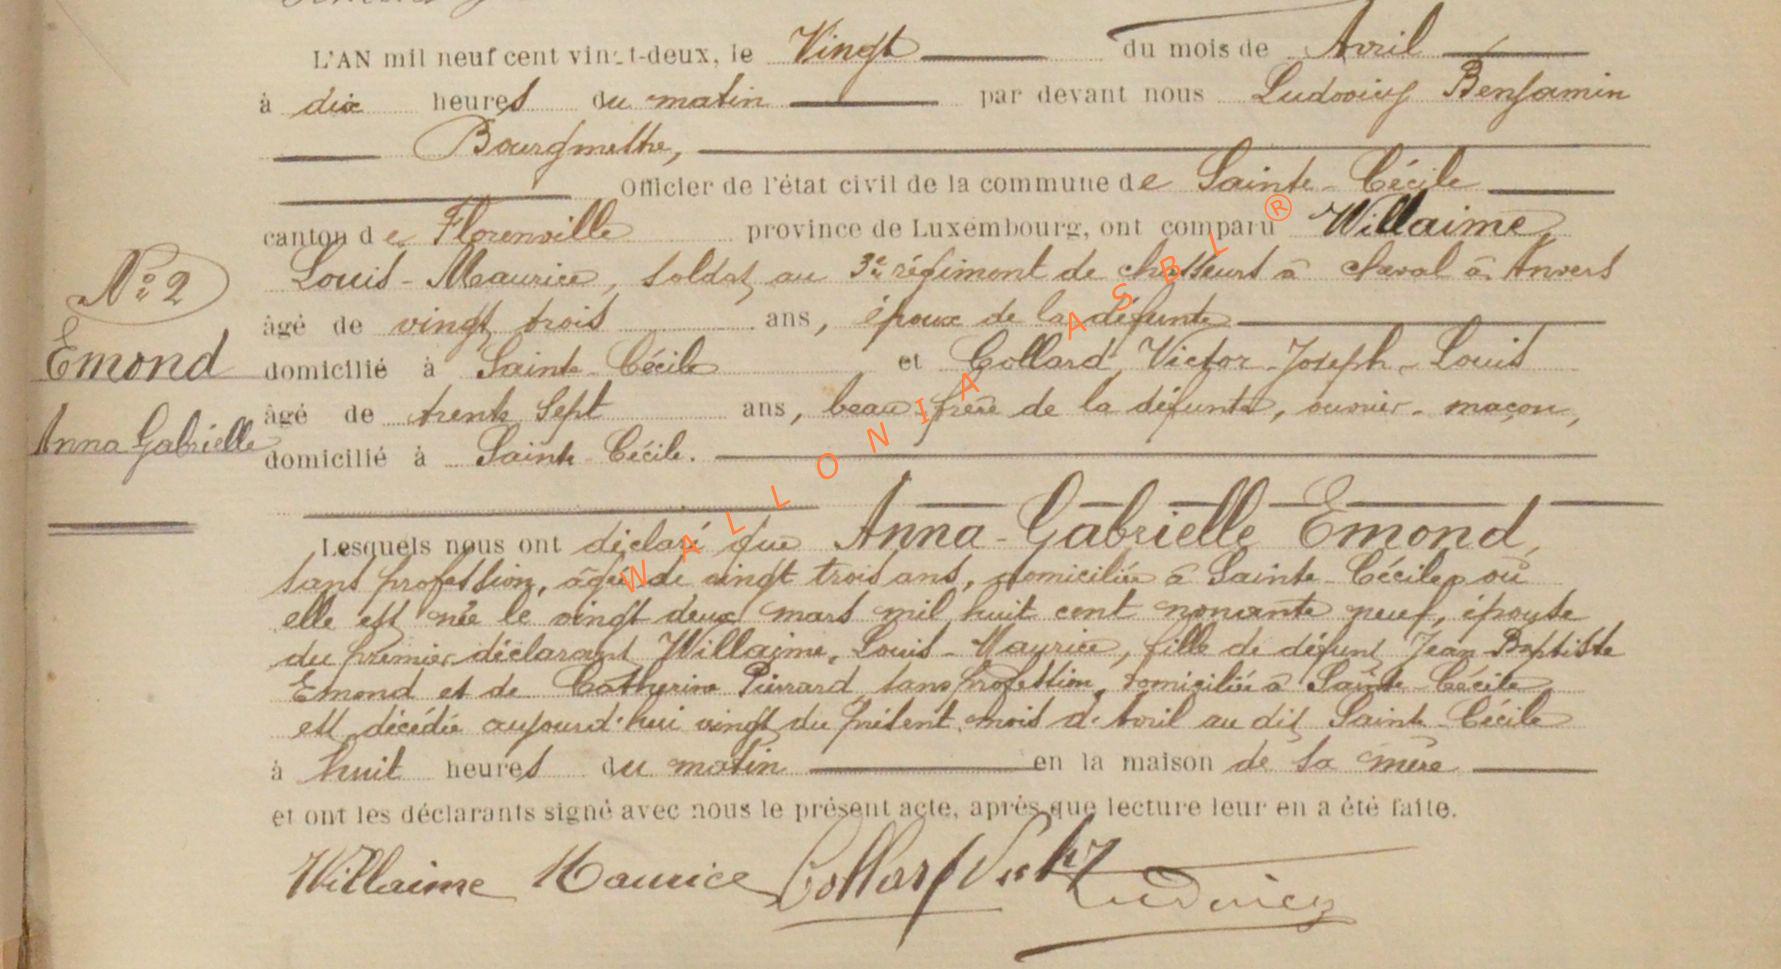 L'AN mil neuf cent vingt-deux, le Vingt du mois de Avril
à dix heures du matin par devant nous Ludovicy Benjamin
Bourgmestre,
Officier de l'état civil de la commune de Sainte-Cécile
canton de Florenville province de Luxembourg, ont comparu Willaime,
Louis-Maurice, soldat au 3e régiment de chasseurs à cheval à Anvers
âgé de vingt trois ans, époux de la défunte
domicilié à Sainte-Cécile et Collard Victor-Joseph-Louis
âgé de trente sept ans, beau-frère de la défunte, ouvrier-maçon,
domicilié à Sainte Cécile.
N° 2
Emond
Anna Gabrielle
Lesquels nous ont déclaré que Anna-Gabrielle Emond,
sans profession, âgée de vingt trois ans, domiciliée à Sainte-Cécile où
elle est née le vingt deux mars mil huit cent nonante neuf, épouse
du premier déclarant Willaime, Louis-Maurice, fille de défunt Jean-Baptiste
Emond et de Catherine Pierrard, sans profession, domiciliée à Sainte-Cécile
est décédée aujourd'hui vingt du présent mois d'Avril au dit Sainte-Cécile
à huit heures du matin en la maison de sa mère
et ont les déclarants signé avec nous le présent acte, après que lecture leur en a été faite.
Willaime Maurice Collard Victor Ludovicy
WALLONIA ASBL ®